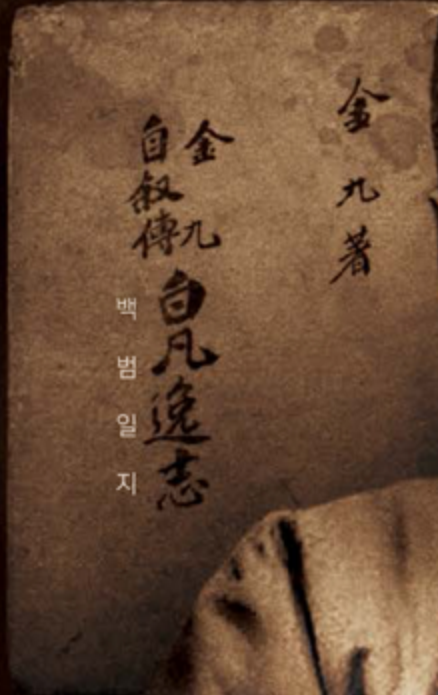 金九著
金九
自叙傳
白凡逸志
백범일지